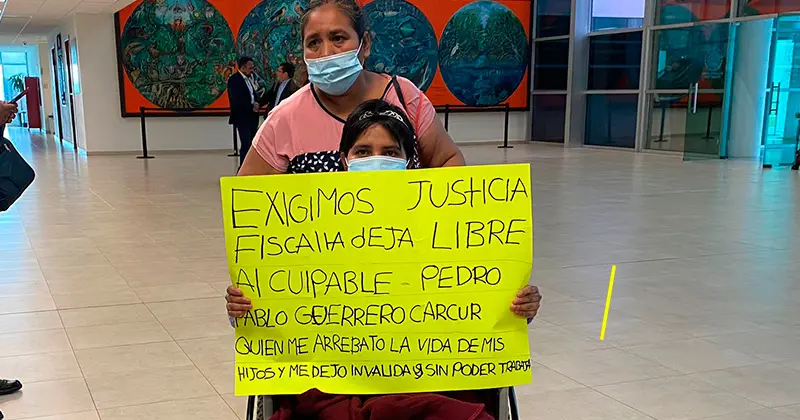 EXIGIMOS JUSTICIA
FISCALIA dEJA LIBRE
Al CUlPABLE - PEDRO
PABLO GUERRERO CARCUR
QUIEN ME ARREBATO LA VIDA DE MIS
HIJOS Y ME DEJO INVALIDA y SIN PODER TRABAJA